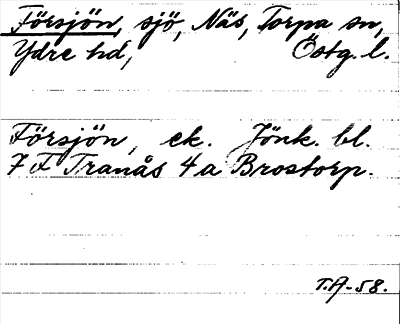 Försjön, sjö, Näs, Torpa sn,
Ydre hd, Östg. l.
Försjön, ek. Jönk. bl.
7 F Tranås 4 a Brostorp.
T.A-58.